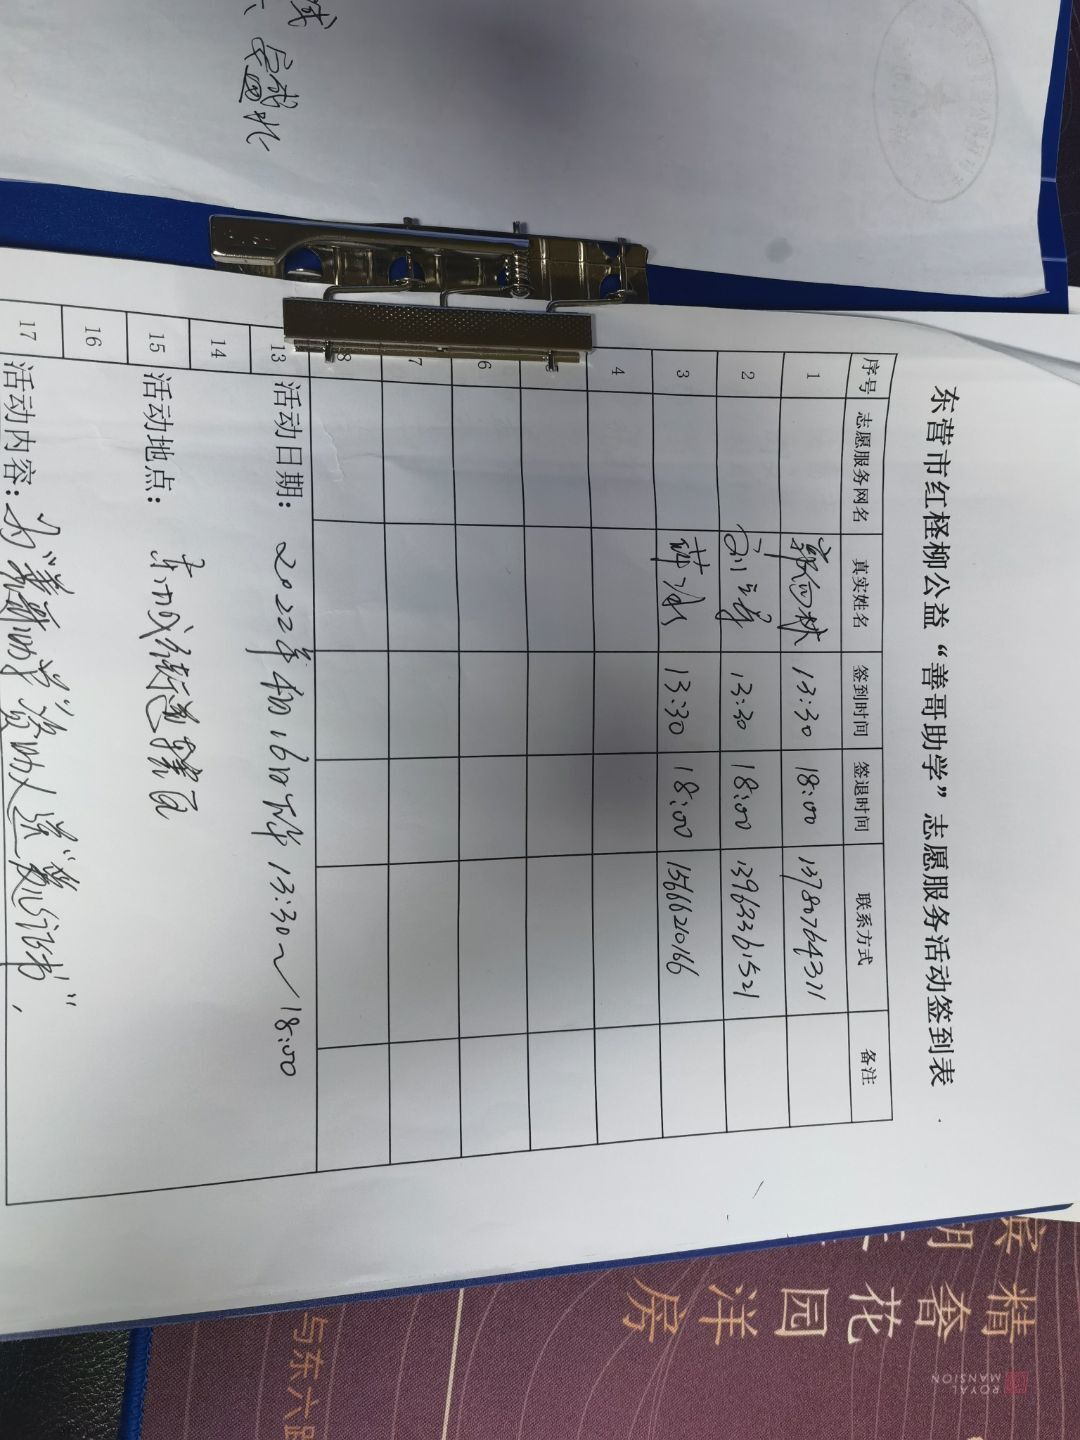 东营市红柽柳公益“善哥助学”志愿服务活动签到表
序号 志愿服务网名 真实姓名 签到时间 签退时间 联系方式 备注
1 郭向林 13:30 18:00 13780764371
2 13:30 18:00 13963361521
3 薛冰 13:30 18:00 15666210166
4
6
7
8
13 活动日期：2022年4月16日下午13:30～18:00
14
15 活动地点：东城街道
16
17 活动内容：为“善哥助学”资助人送“爱心计书”，
精奢花园洋房
ROYAL MANSION
与东六路